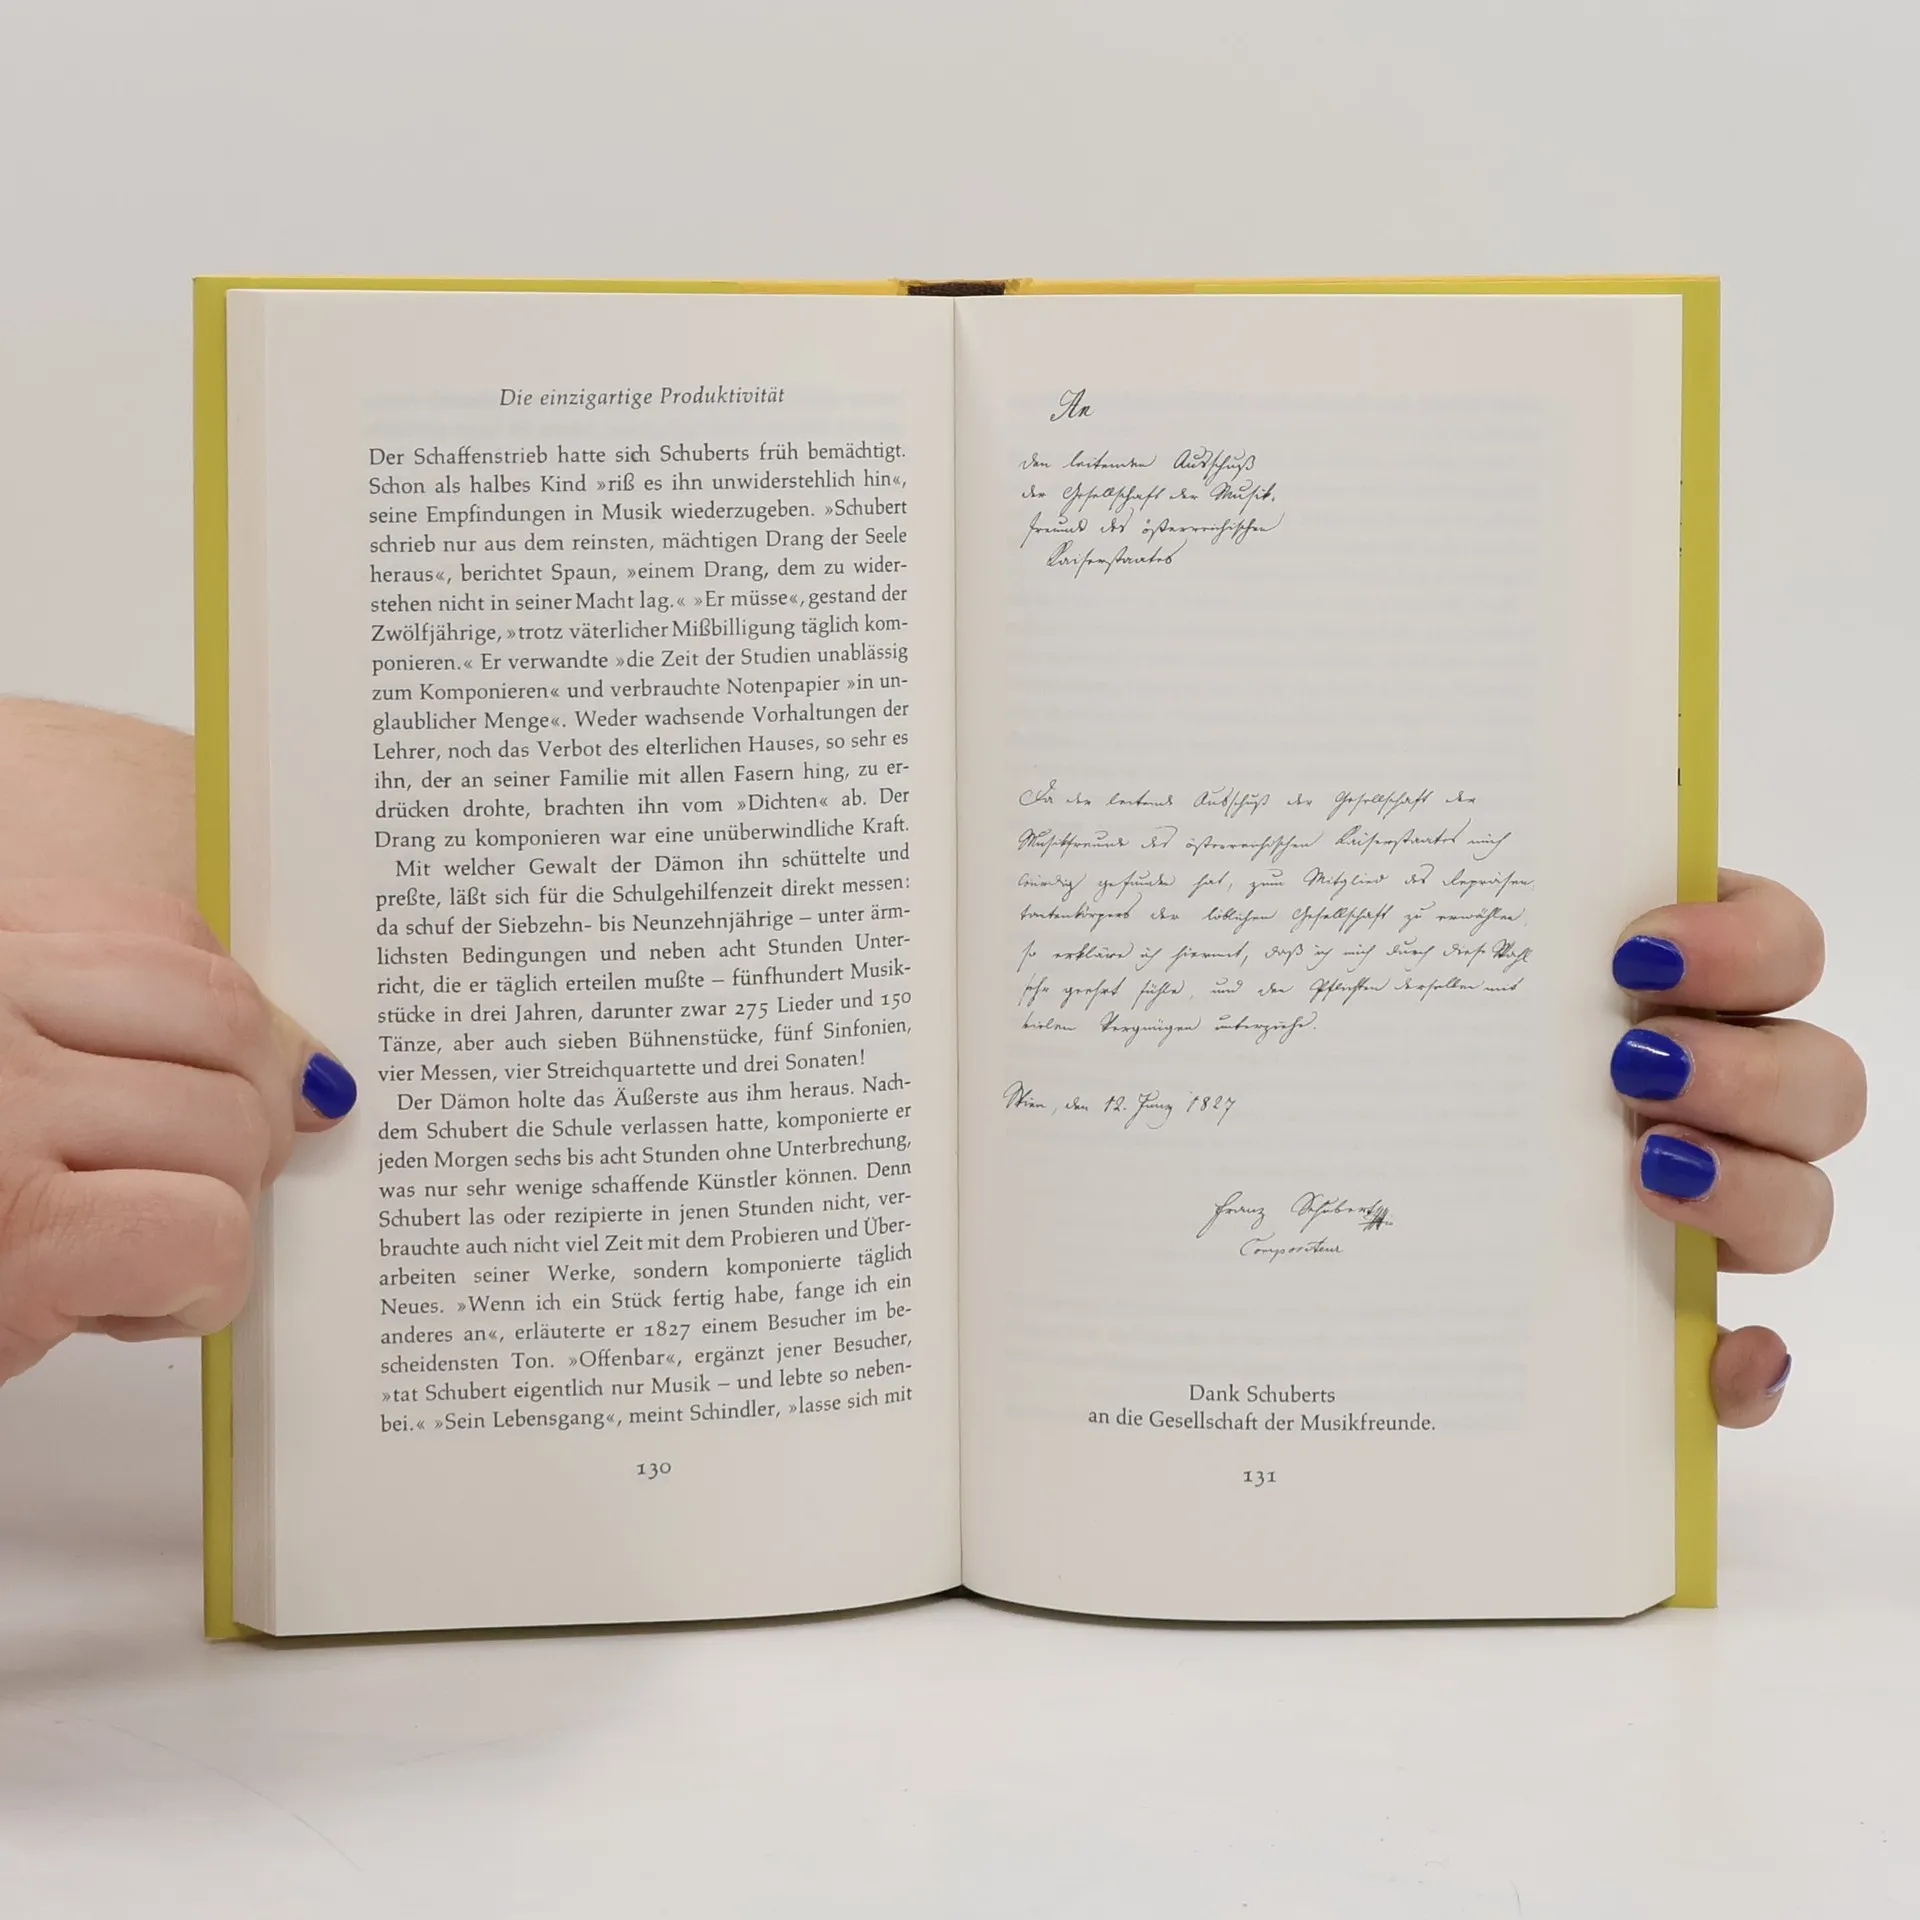 Die einzigartige Produktivität
Der Schaffenstrieb hatte sich Schuberts früh bemächtigt.
Schon als halbes Kind »riß es ihn unwiderstehlich hin«,
seine Empfindungen in Musik wiederzugeben. »Schubert
schrieb nur aus dem reinsten, mächtigen Drang der Seele
heraus«, berichtet Spaun, »einem Drang, dem zu wider-
stehen nicht in seiner Macht lag.« »Er müsse«, gestand der
Zwölfjährige, »trotz väterlicher Mißbilligung täglich kom-
ponieren.« Er verwandte »die Zeit der Studien unablässig
zum Komponieren« und verbrauchte Notenpapier »in un-
glaublicher Menge«. Weder wachsende Vorhaltungen der
Lehrer, noch das Verbot des elterlichen Hauses, so sehr es
ihn, der an seiner Familie mit allen Fasern hing, zu er-
drücken drohte, brachten ihn vom »Dichten« ab. Der
Drang zu komponieren war eine unüberwindliche Kraft.
Mit welcher Gewalt der Dämon ihn schüttelte und
preßte, läßt sich für die Schulgehilfenzeit direkt messen:
da schuf der Siebzehn- bis Neunzehnjährige – unter ärm-
lichsten Bedingungen und neben acht Stunden Unter-
richt, die er täglich erteilen mußte – fünfhundert Musik-
stücke in drei Jahren, darunter zwar 275 Lieder und 150
Tänze, aber auch sieben Bühnenstücke, fünf Sinfonien,
vier Messen, vier Streichquartette und drei Sonaten!
Der Dämon holte das Äußerste aus ihm heraus. Nach-
dem Schubert die Schule verlassen hatte, komponierte er
jeden Morgen sechs bis acht Stunden ohne Unterbrechung,
was nur sehr wenige schaffende Künstler können. Denn
Schubert las oder rezipierte in jenen Stunden nicht, ver-
brauchte auch nicht viel Zeit mit dem Probieren und Über-
arbeiten seiner Werke, sondern komponierte täglich
Neues. »Wenn ich ein Stück fertig habe, fange ich ein
anderes an«, erläuterte er 1827 einem Besucher im be-
scheidensten Ton. »Offenbar«, ergänzt jener Besucher,
»tat Schubert eigentlich nur Musik – und lebte so neben-
bei.« »Sein Lebensgang«, meint Schindler, »lasse sich mit
130
An
den leitenden Ausschuß
der Gesellschaft der Musik-
freunde des österreichischen
Kaiserstaates
Da der leitende Ausschuß der Gesellschaft der
Musikfreunde des österreichischen Kaiserstaates mich
würdig gefunden hat, zum Mitglied des Repräsen-
tantenkörpers der löblichen Gesellschaft zu erwählen,
so erkläre ich hiermit, daß ich mich durch diese Wahl
sehr geehrt fühle, und den Pflichten derselben mit
vielen Vergnügen unterziehe.
Wien, den 12. Juny 1827
Franz Schubert
Compositeur
Dank Schuberts
an die Gesellschaft der Musikfreunde.
131